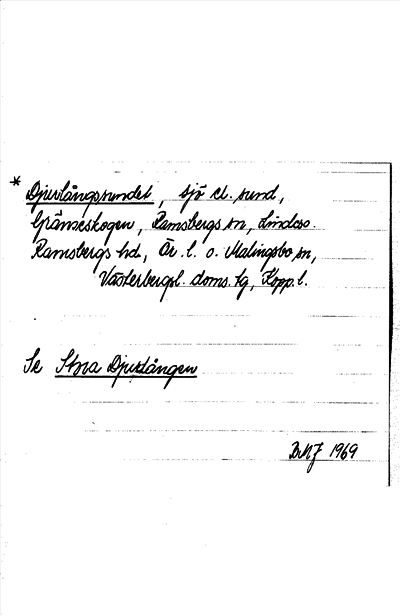 * Djurlångssundet, sjö el. sund,
Gränsskogen, Ramsbergs sn, Lindes o.
Ramsbergs hd, Ör. l. o. Malingsbo sn,
Västerbergsl. doms. tg, Kopp. l.
Se Stora Djurlången
BMJ 1969